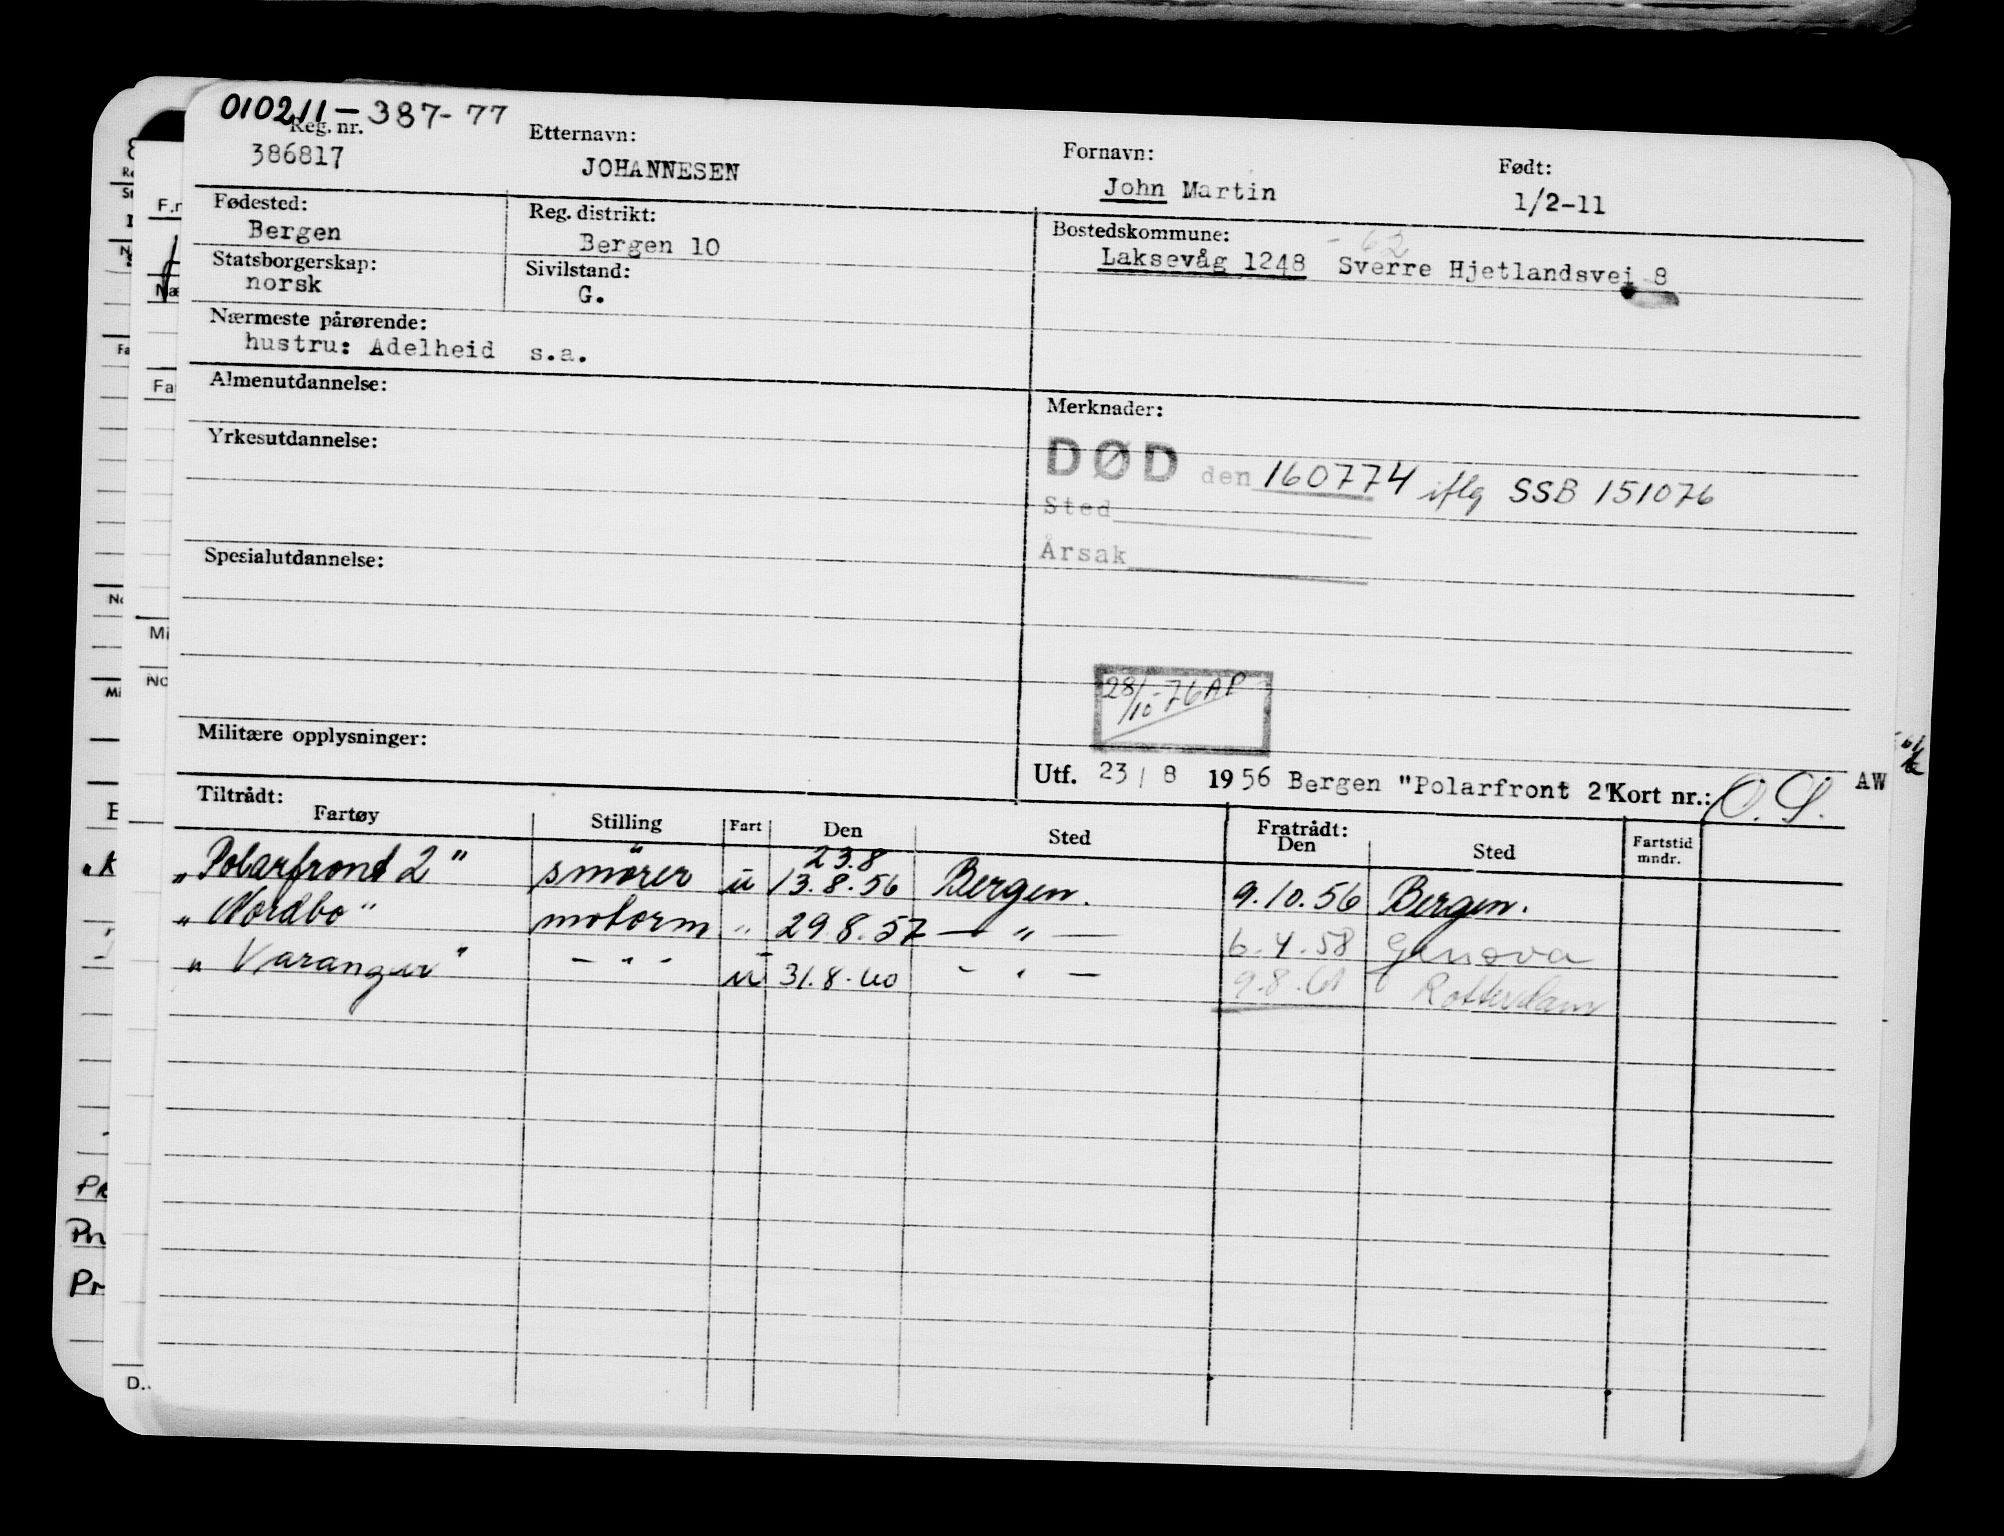 010211-387-77
Reg. nr. Etternavn: Fornavn: Født:
386817 JOHANNESEN John Martin 1/2-11
Fødested: Reg. distrikt: Bostedskommune:
Bergen Bergen 10 Laksevåg 1248 -62 Sverre Hjetlandsvei 8
Statsborgerskap: Sivilstand:
norsk G.
Nærmeste pårørende:
hustru: Adelheid s.a.
Almenutdannelse: Merknader:
Yrkesutdannelse: DØD den 160774 iflg SSB 151076
Sted
Spesialutdannelse: Årsak
28/10-76 AP
Militære opplysninger:
Utf. 23 / 8 1956 Bergen "Polarfront 2" Kort nr.: O.S. AW
Tiltrådt: Fratrådt:
Fartøy Stilling Fart Den Sted Den Sted Fartstid mndr.
23.8
"Polarfront 2" smører u 13.8.56 Bergen. 9.10.56 Bergen.
"Nordbo" motorm " 29.8.57 — " — 6.4.58 Genova
"Varanger" - " - u 31.8.60 - " - 9.8.61 Rotterdam